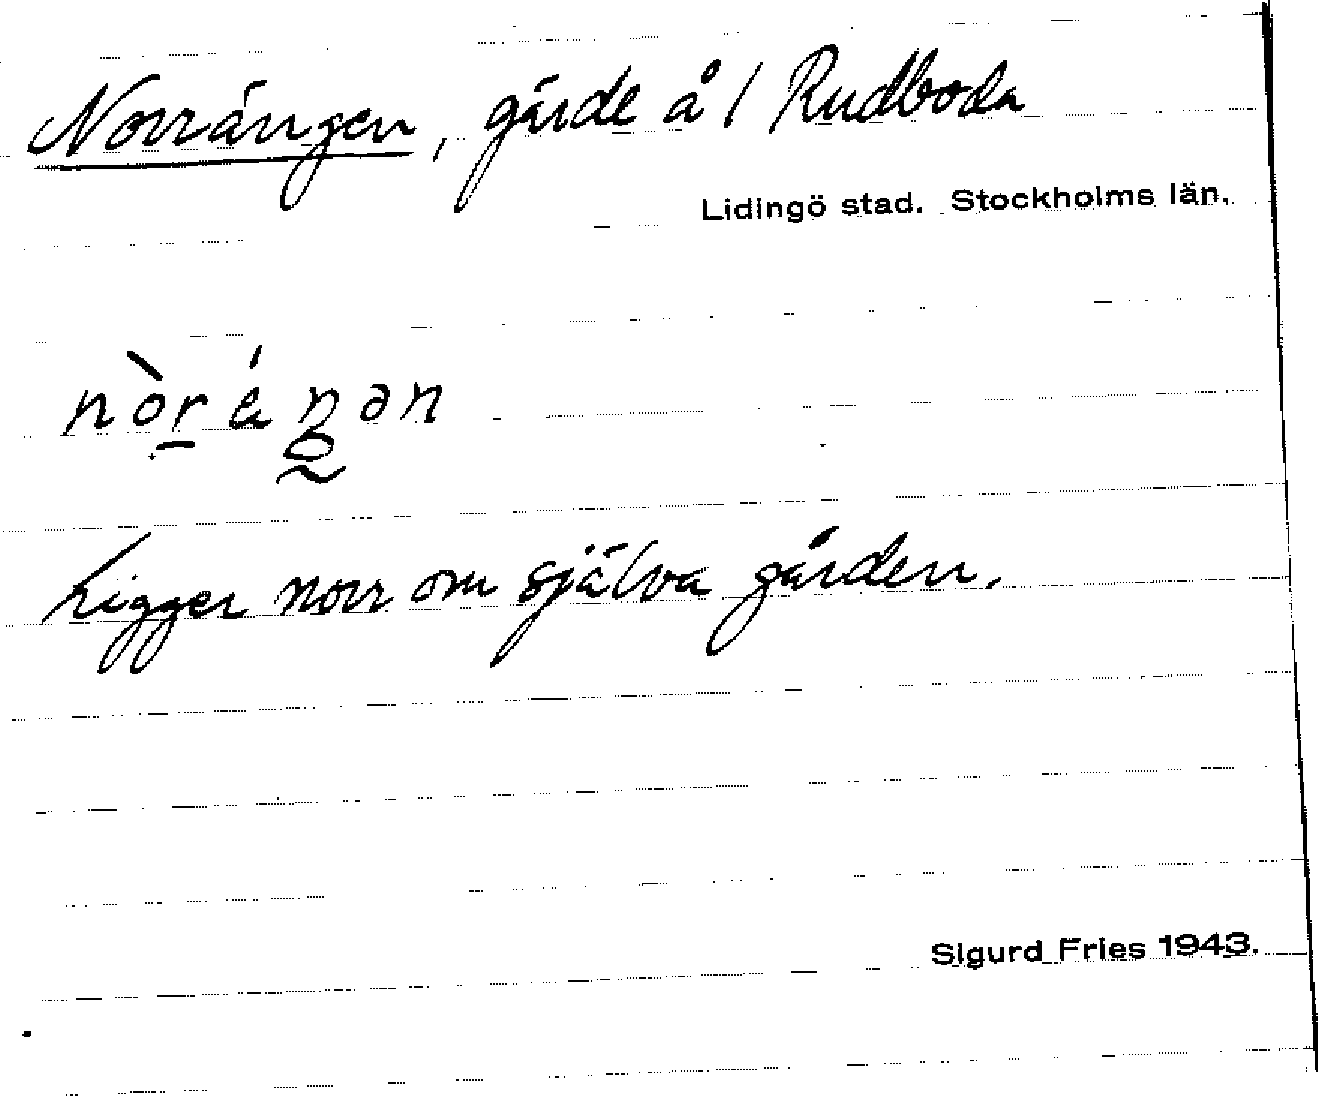 Norrängen, gärde å / Rudboda
Lidingö stad. Stockholms län.
Ligger norr om själva gården.
Sigurd Fries 1943.